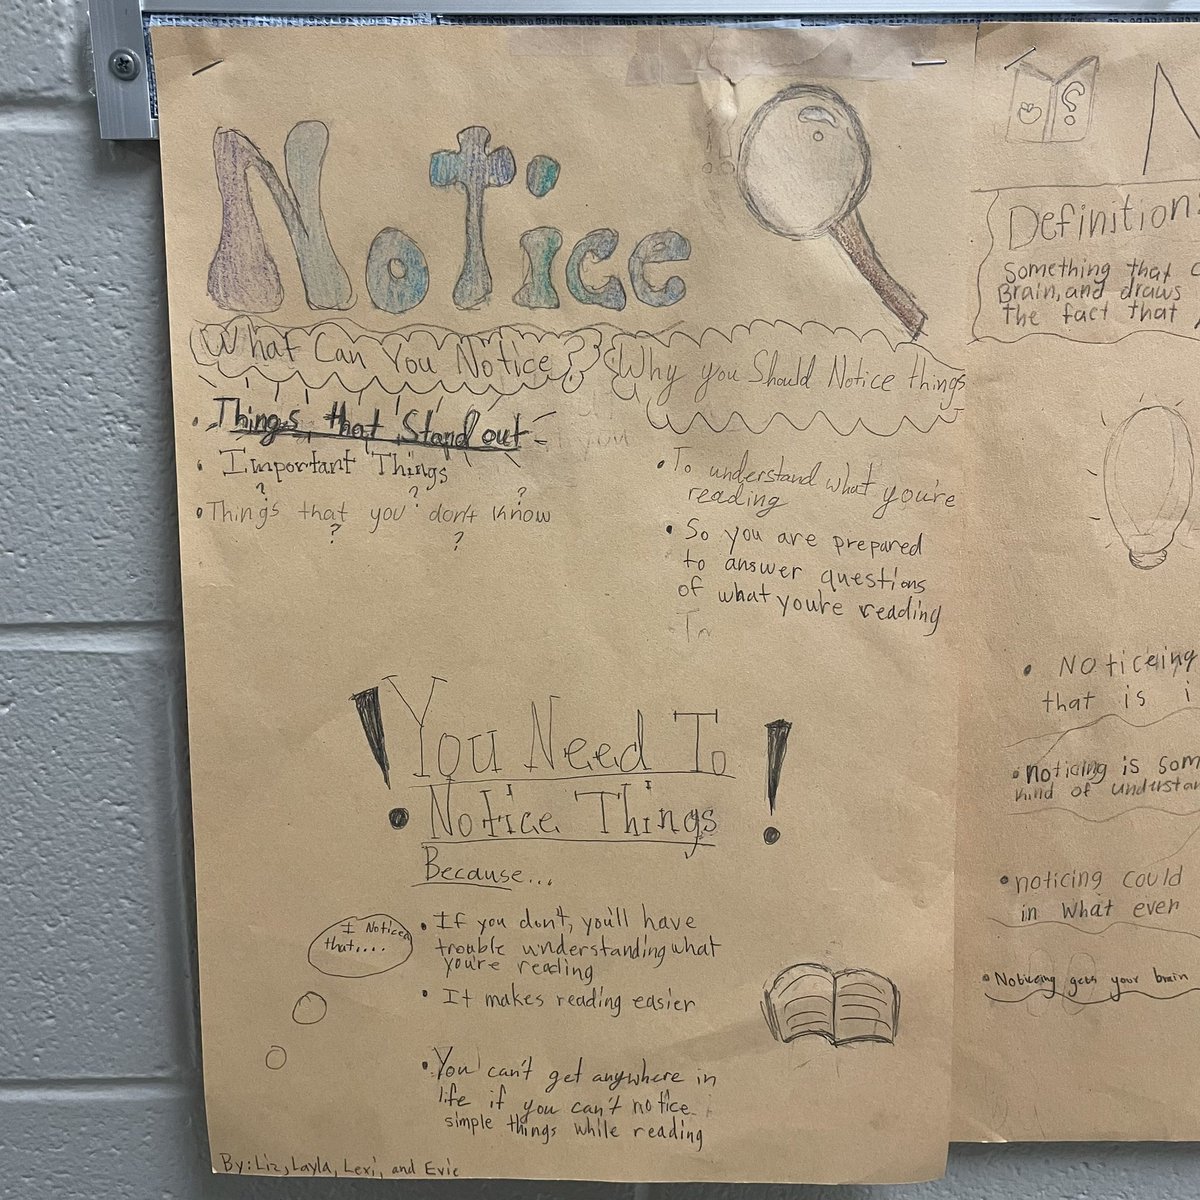 Notice
What Can You Notice?
• Things that Stand out
• Important Things
• Things that you don't know
Why you Should Notice things
• To understand what you're
reading
• So you are prepared
to answer questions
of what you're reading
You Need To
Notice Things
Because...
I Noticed
that....
• If you don't, you'll have
trouble understanding what
you're reading
• It makes reading easier
• You can't get anywhere in
life if you can't notice
simple things while reading
By: Liz, Layla, Lexi, and Evie
Definition
Something that
Brain, and draws
the fact that
• Noticeing
that is
• noticing is
kind of
• noticing could
in what ever
• Noticing gets your brain